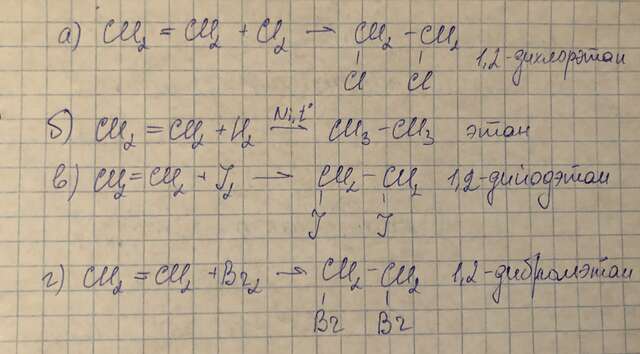 а) CH₂ = CH₂ + Cl₂ → CH₂ - CH₂
Cl Cl 1,2-дихлорэтан
б) CH₂ = CH₂ + H₂ Ni,t° → CH₃ - CH₃ этан
в) CH₂ = CH₂ + J₂ → CH₂ - CH₂ 1,2-дийодэтан
J J
г) CH₂ = CH₂ + Br₂ → CH₂ - CH₂ 1,2-дибромэтан
Br Br